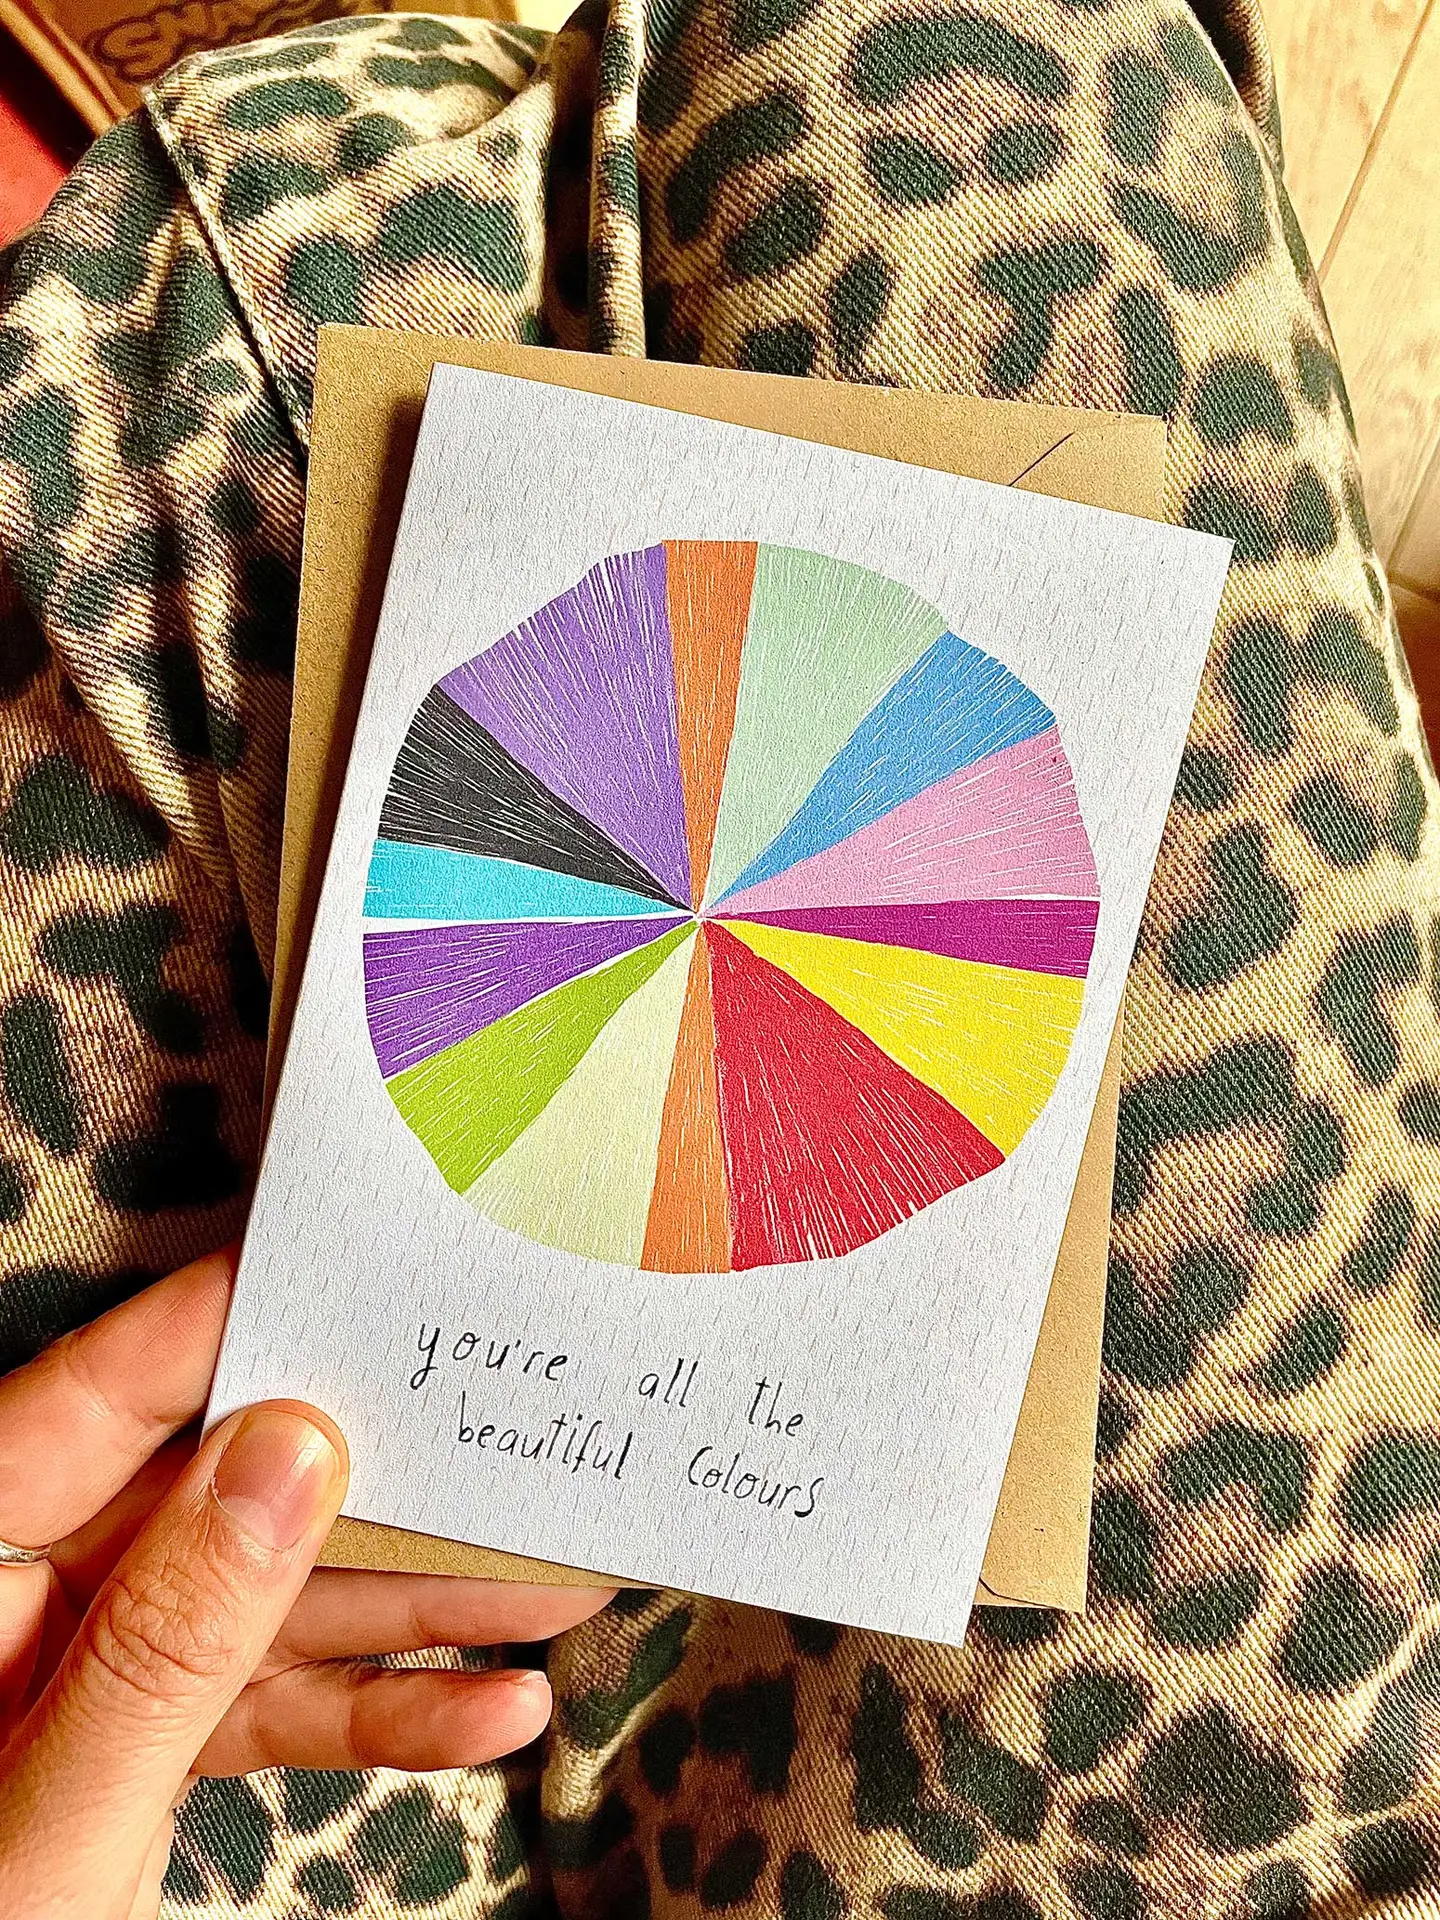 you're all the
beautiful Colours